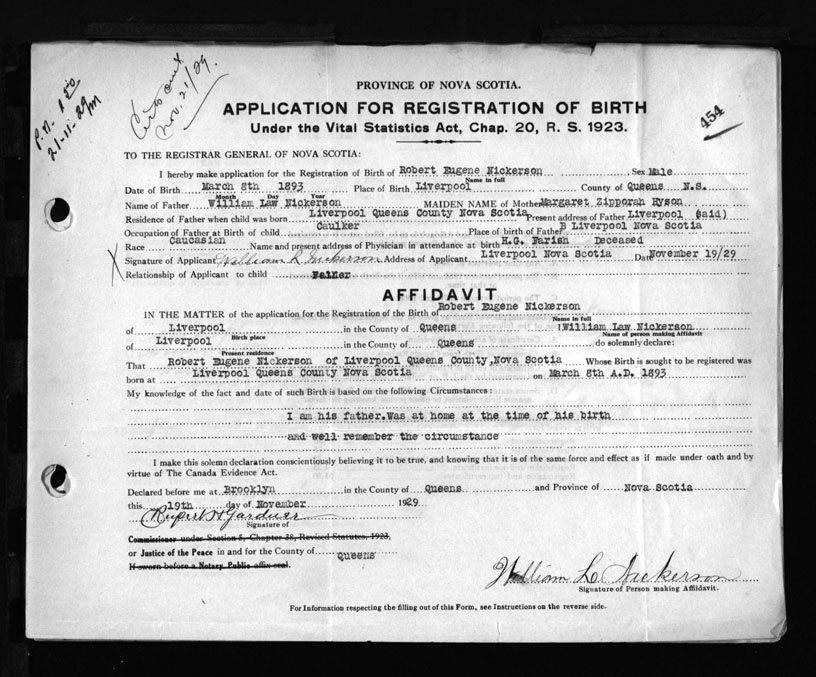 P.N. 1 50
21-11-29
Nov. 21/29.
454
PROVINCE OF NOVA SCOTIA.
APPLICATION FOR REGISTRATION OF BIRTH
Under the Vital Statistics Act, Chap. 20, R. S. 1923.
TO THE REGISTRAR GENERAL OF NOVA SCOTIA:
I hereby make application for the Registration of Birth of Robert Eugene Nickerson Sex Male
Name in full
Date of Birth March 8th 1893 Place of Birth Liverpool County of Queens N.S.
Month Day Year
Name of Father William Law Nickerson MAIDEN NAME of Mother Margaret Zipporah Hyson
Residence of Father when child was born Liverpool Queens County Nova Scotia Present address of Father Liverpool (said)
Occupation of Father at Birth of child Caulker Place of birth of Father B Liverpool Nova Scotia
Race Caucasian Name and present address of Physician in attendance at birth H.G. Farish Deceased
Signature of Applicant William L Nickerson Address of Applicant Liverpool Nova Scotia Date November 19/29
X Relationship of Applicant to child Father
AFFIDAVIT
IN THE MATTER of the application for the Registration of the Birth of Robert Eugene Nickerson
Name in full
of Liverpool in the County of Queens I William Law Nickerson
Birth place Name of person making Affidavit
of Liverpool in the County of Queens do solemnly declare:
Present residence
That Robert Eugene Nickerson of Liverpool Queens County, Nova Scotia Whose Birth is sought to be registered was
born at Liverpool Queens County Nova Scotia on March 8th A.D. 1893
My knowledge of the fact and date of such Birth is based on the following Circumstances:
I am his father.Was at home at the time of his birth
and well remember the circumstance
I make this solemn declaration conscientiously believing it to be true, and knowing that it is of the same force and effect as if made under oath and by
virtue of The Canada Evidence Act.
Declared before me at Brooklyn in the County of Queens and Province of Nova Scotia
this 19th day of November 1929
Rupert W Gardner
Signature of
Commissioner under Section 5, Chapter 38, Revised Statutes, 1923,
or Justice of the Peace in and for the County of Queens
If sworn before a Notary Public affix seal.
William L. Nickerson
Signature of Person making Affidavit.
For Information respecting the filling out of this Form, see Instructions on the reverse side.